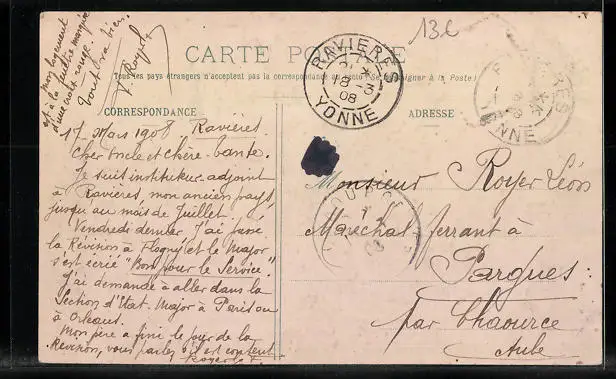 mon logement
est à la fenêtre marquée
d'une croix rouge.
Tout va bien.
13€
CARTE POSTALE
Tous les pays étrangers n'acceptent pas la correspondance au recto (Se renseigner à la Poste)
CORRESPONDANCE
ADRESSE
RAVIERES
18 -3
08
YONNE
YONNE
17 Mars 1908 Ravières.
Cher Oncle et Chère tante.
Je suis instituteur adjoint
à Ravières, mon ancien pays,
jusqu'au mois de Juillet.
Vendredi dernier J'ai passé
la Révision à Flogny et le Major
s'est écrié "Bon pour le Service."
J'ai demandé à aller dans la
Section d'Etat-Major à Paris ou
à Orléans.
Mon père a fini le jour de la
Révision, vous parlez s'il est content
Monsieur Royer Léon
Maréchal ferrant à
Pargues.
par Chaource
Aube